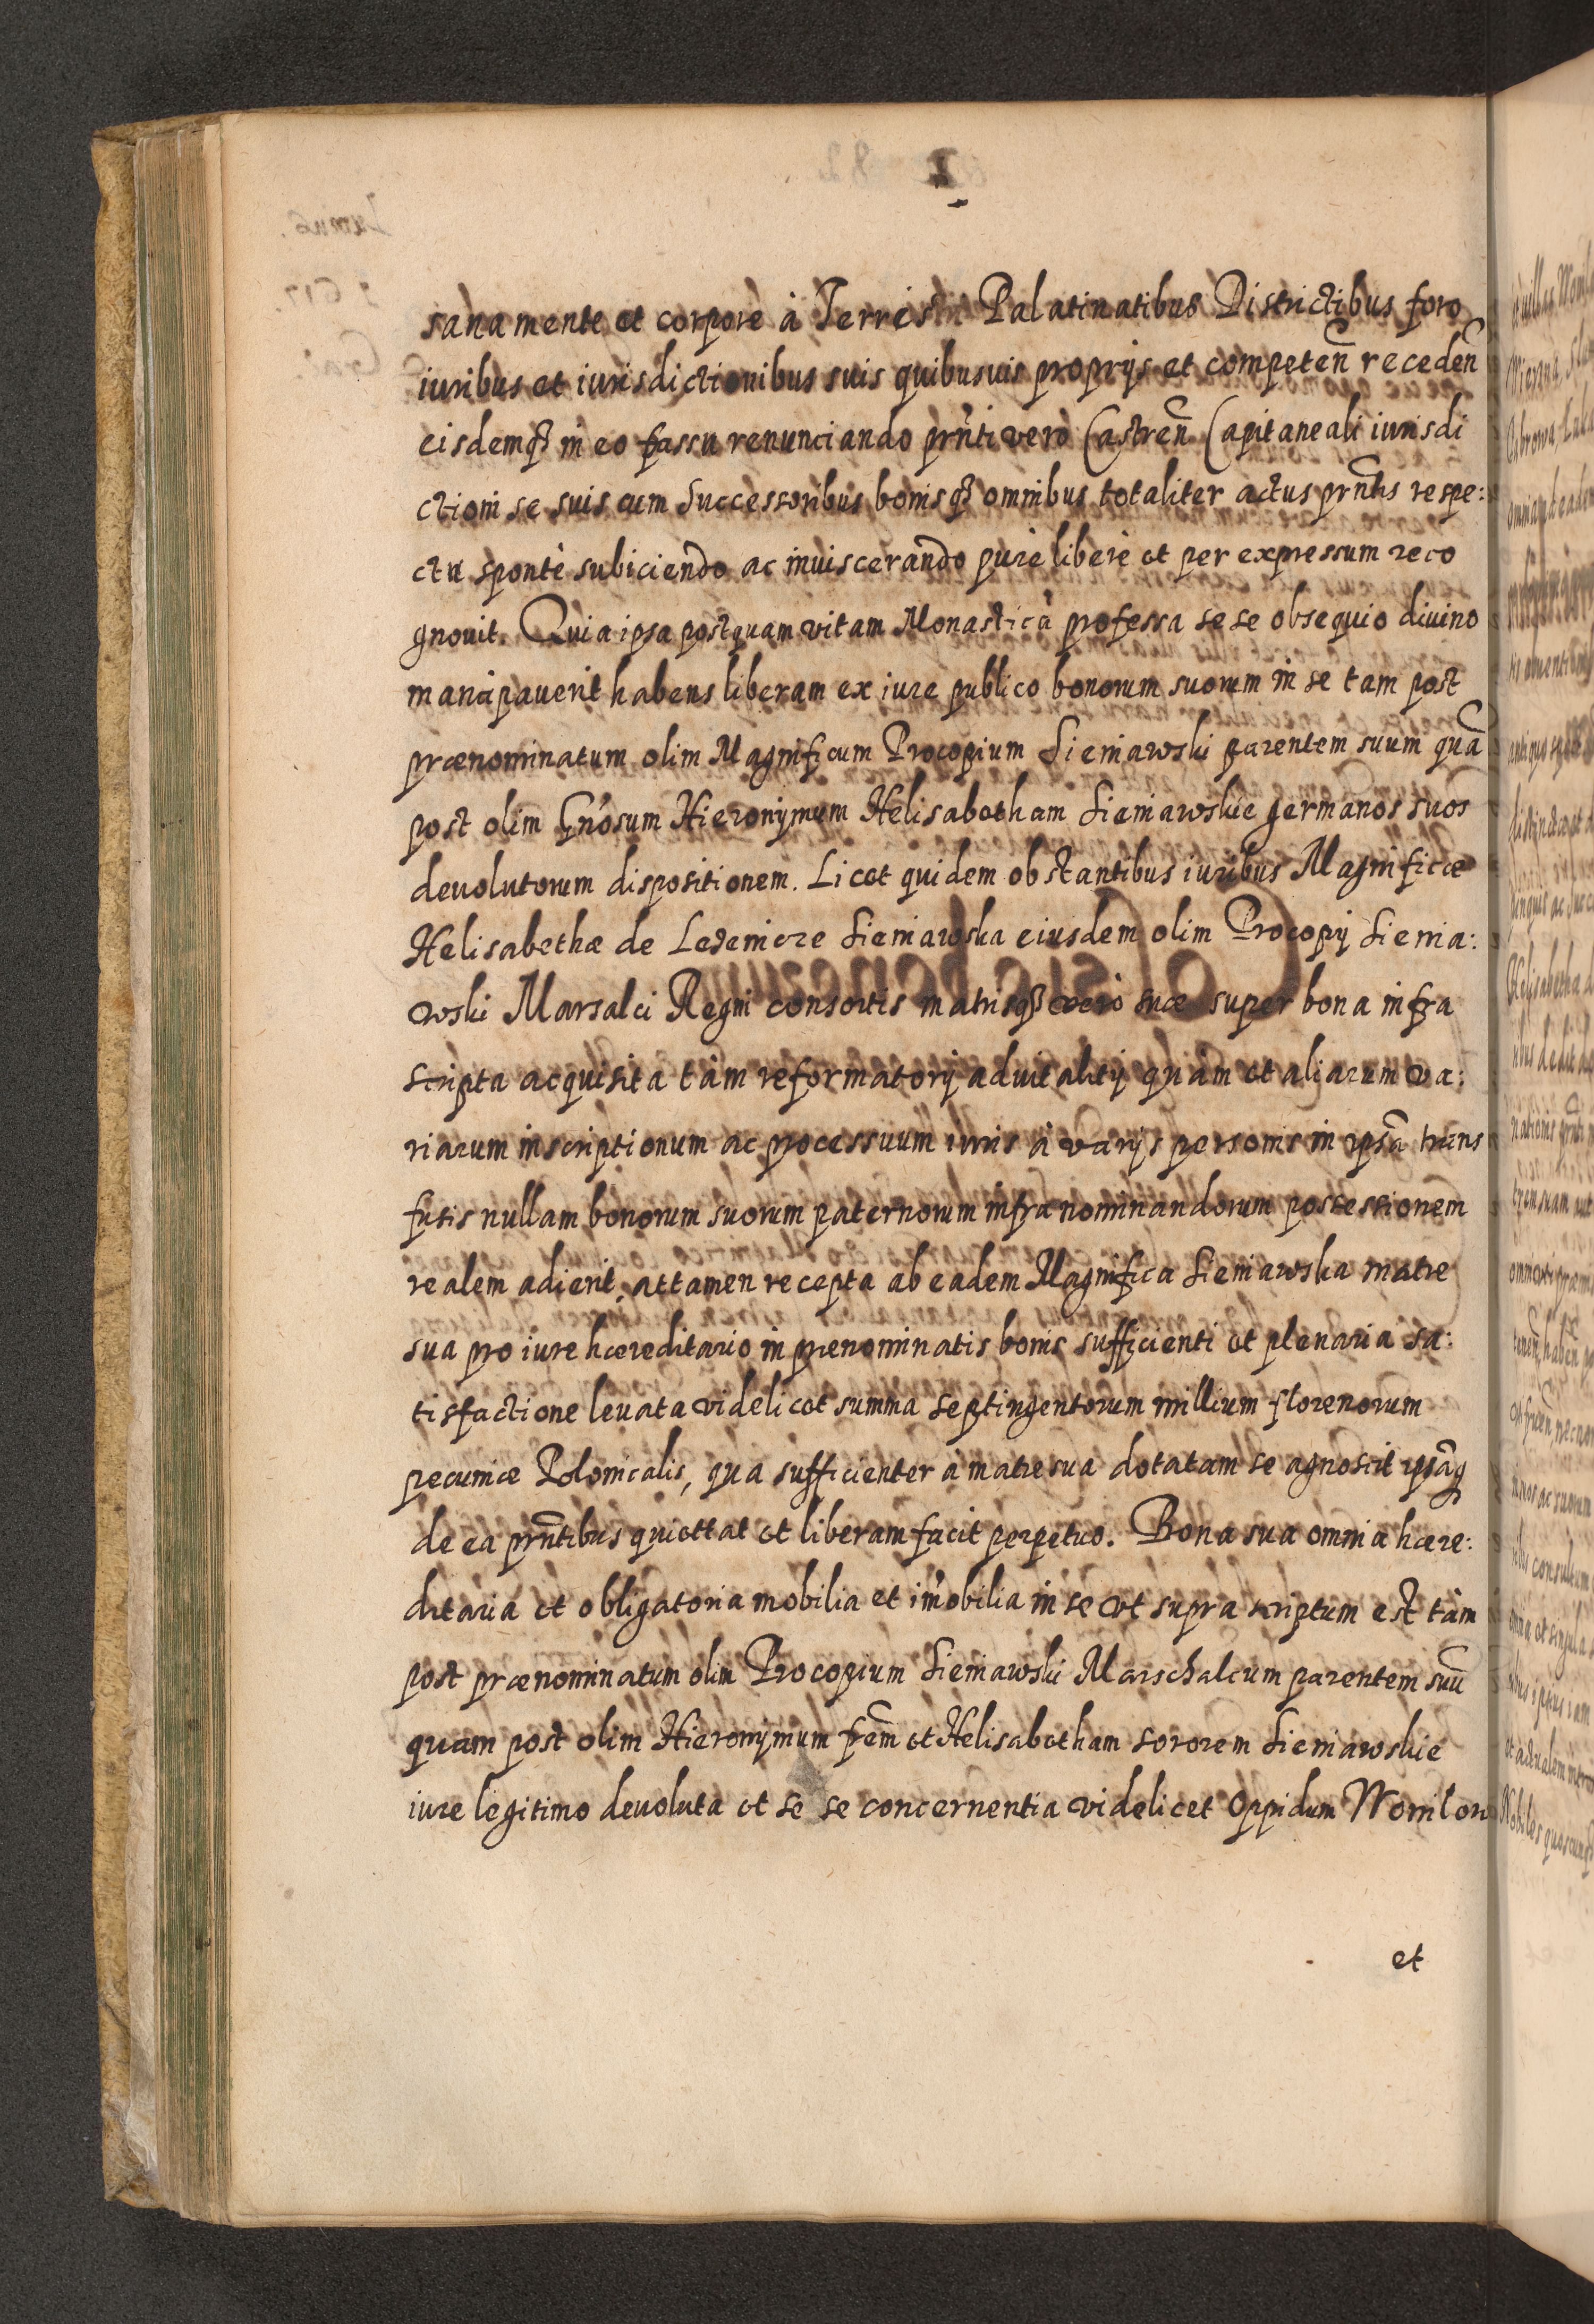 2
sana mente et corpore à Terris Palatinatibus Districtibus foro
iuribus et iurisdictionibus suis quibusuis proprijs et competeñ receden̄
eisdemq3 in eo passu renunciando prn̄ti vero Castren̄ Capitaneali iurisdi
ctioni se suis cum Successoribus bonisq3 omnibus totaliter actus prn̄tis respe:
ctu spontè subiciendo ac inuiscerando purè liberè et per expressum reco
gnouit. Quia ipsa postquam vitam Monasticà professa sese obsequio diuino
mancipauerit habens liberam ex iure publico bonorum suorum in se tam post
prænominatum olim Magnificum Procopium Sieniawski parentem suum quā
post olim Gn̄osum Hieronÿmum Helisabetham Sieniawskie germanos suos
deuolutorum dispositionem. Licet quidem obstantibus iuribus Magnificæ
Helisabethæ de Sieniawska eiusdem olim Procopij Sienia:
wski Marsalci Regni consortis matrisq3 vero suæ super bona infra
scripta acquisita tàm reformatorij aduitalitij quàm et aliarum va:
riarum inscriptionum ac processuum iuris à varijs personis in ipsā trans
fusis nullam bonorum suorum paternorum infra nominandorum possessionem
realem adierit, attamen recepta ab eadem Magnifica Sieniawska matre
sua pro iure hæreditario in prænominatis bonis sufficienti et plenaria sa:
tisfactione leuata videlicet summa septingentorum millium florenorum
pecuniæ Polonicalis, qua sufficienter à matre sua dotatam se agnoscit ipsāq
de ea prn̄tibus quiettat et liberam facit perpetuo. Bona sua omnia hære:
ditaria et obligatoria mobilia et im̄obilia in se vt supra scriptum est tàm
post prænominatum olim Procopium Sieniawski Marschalcum parentem suū
quam post olim Hieronÿmum frēm et Helisabetham sororem Sieniawskie
iure legitimo deuoluta et se se concernentia videlicet Oppidum
et